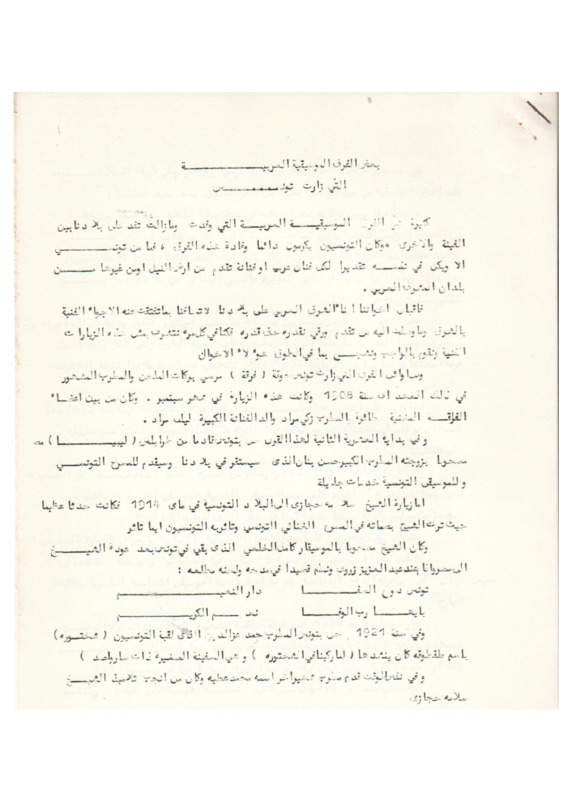 بعض الفرق الموسيقية العربيـــــــة
التي زارت تونـــــس
كثيرة هي الفرق الموسيقيــة العربيــة التي وفدت ومازالت تفد على بلادنا بين
الفينة والاخرى وكان التونسيون يكرمون دائما وفادة هذه الفرق فما من تونســـي
الا ويكن في نفســه تقديرا لكل فنان عربي او فنانة تقدم من ارض النيل اومن غيرها مـــن
بلدان المشرق العربي .
فاقبال اخواننا ابناء الشرق العربي على بلادنا لاتصالنا بما تفتقت عنه الاجواء الفنية
بالشرق وما وصلت اليه من تقدم ورقي نقدره حق قدره فكنا في كل مرة نتشرف بمثل هذه الزيارات
الفنية ونقوم بالواجب ونشجــع بما في الطوق هؤلاء الاخوان
ومن اوائل الفرق التي زارت تونس جوقة ( فرقة ) مرسي بركات الملحن والمطرب المشهور
في ذلك العهد ات سنة 1908 وكانت هذه الزيارة في شهر سبتمبر . وكان من بين اعضــاء
الفرقــة المطرب زكي مراد والد الفنانة الكبيرة ليلى مراد .
وفي بداية العشرية الثانية لهذا القرن حل بتونس قادما من طرابلس ( ليبيـــا )
مصحوبا بزوجته المطرب الكبير حسن بنان الذى سيستقر في بلادنا وسيقدم للمسرح التونســـي
وللموسيقى التونسية خدمات جليلة
اما زيارة الشيخ سلامه حجازى الى البلاد التونسية في ماى 1914 فكانت حدثا عظيما
حيث ترك الشيخ بصماته في المسرح الغنائي التونسي وتاثر به التونسيون ايما تاثر
وكان الشيخ مصحوبا بالموسيقار كامل الخلعي الذى بقي في تونس بعد عودة الشيـــخ
الى مصر وانا بتد عبد العزيز زروق ونظم قصيدا في مدحه ولحنه مطالعه :
تونس دوح الصفـــا دار النعيــــــم
بايهــا رب الوفـــا نعــم الكريــــم
وفي سنة 1921 حل بتونس المطرب حمد عزالدين الذى لقبه التونسيون ( شختوره )
باسم طقطوقه كان ينشدها ( اما ركبنا في الشختوره ) وهي السفينة الصغيرة ذات سار واحد )
وفي نفس الوقت قدم مطرب مصري اخر اسمه محمد عطيه وكان من انجب تلاميذ الشيـــخ
سلامه حجازى